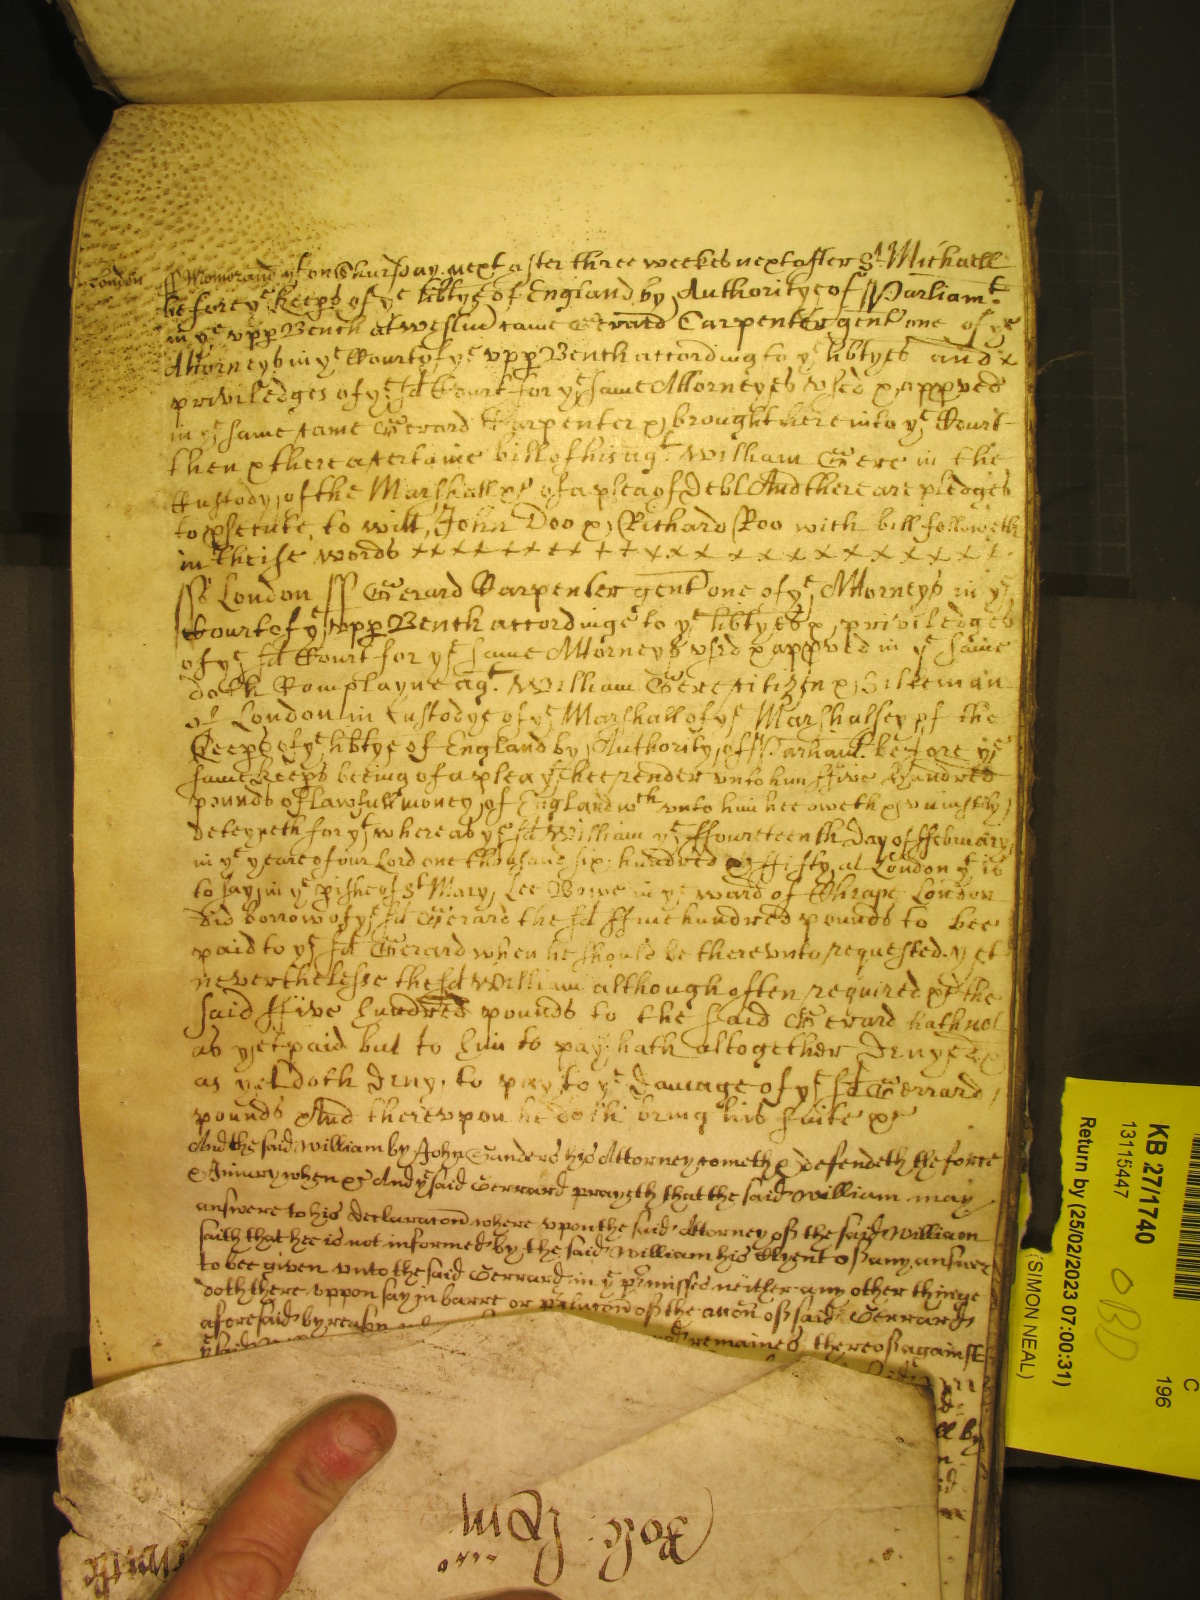 London ss Memorand yt on Thursday next after three weekes next after St Michaell
before ye Keeps of ye libtye of England by Authoritye of Parliamt
in ye upp Bench at Westmr came Gerard Carpenter gent one of ye
Attorneys in ye Court of ye upp Bench according to ye libtyes and x
priviledges of ye sd Court for ye same Attorneyes used & appved
in ye same came Gerard Carpenter & brought here into ye Court
then & there a certaine bill of his agt William Gere in the
Custody of the Marshall &c of a plea of Debt And there are pledges
to psecute, to witt, John Doo & Richard Roo wich bill followeth
in theise words x x x x x x x x x x x x x x x x x x x
ss London ss Gerard Carpenter gent one of ye Attorneys in ye
Court of ye upp Bench accordinge to ye libtyes & priviledges
of ye sd Court for ye same Attorneys used & appved in ye same
doth Complayne agt William Gere citizen & Silkeman
of London in Custodye of ye Marshall of ye Marshalsey of the
Keeps of ye libtye of England by Authority of Parliamt before ye
same Keeps beeing of a plea yt hee render unto him ffive Hundred
pounds of lawfull money of England wch unto him hee oweth & uniustly
deteyneth for yt whereas ye sd William ye ffourteenth day of ffebruary
in ye yeare of our Lord one thousand six hundred & ffifty at London yt is
to say in ye pishe of St Mary Lee Bowe in ye ward of Cheape London
did borrow of ye sd Gerard the sd ffive hundred pounds to bee
paid to ye sd Gerard when he should be thereunto requested yet
neverthelesse the sd William although often required &c the
said ffive hundred pounds to the said Gerard hath not
as yet paid but to him to pay hath altogether denyed &
as yet doth deny to pay to ye damage of ye sd Gerrard
pounds And thereupon he doth bring his suite &c
And the said William by John Sanders his Attorney cometh & defendeth the force
& Iniury when &c And ye said Gerrard prayeth that the said William may
answere to his declaracon where uppon the said Attorney of the said William
saith that hee is not informed by the said William his Clyent of any answer
to bee given unto the said Gerrard in ye prmisses neither any other thinge
doth there uppon say in barre or of the accon of said Gerrard
aforesaid by reason
ye said remaines thereof against
Rolls
KB 27/1740
13115447
Return by (25/02/2023 07:00:31)
(SIMON NEAL)
C
196
OBD